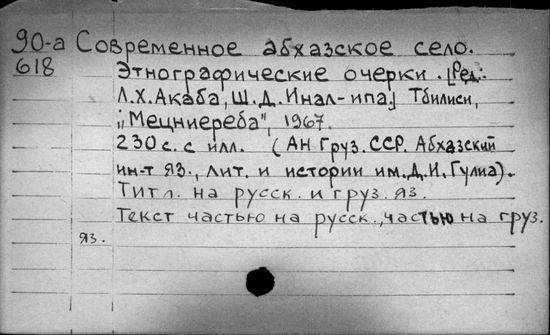 90-а Современное абхазское село.
618 Этнографические очерки. [Ред.:
Л.Х.Акаба, Ш.Д.Инал-ипа.] Тбилиси,
„Мецниереба", 1967.
230 с. с илл. (АН Груз. ССР. Абхазский
ин-т яз., лит. и истории им. Д.И.Гулиа).
Титл. на русск. и груз. яз.
Текст частью на русск., частью на груз.
яз.